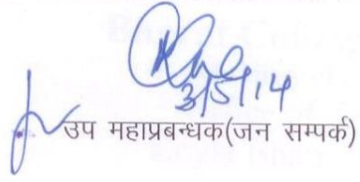 3/5/14
उप महाप्रबन्धक(जन सम्पर्क)